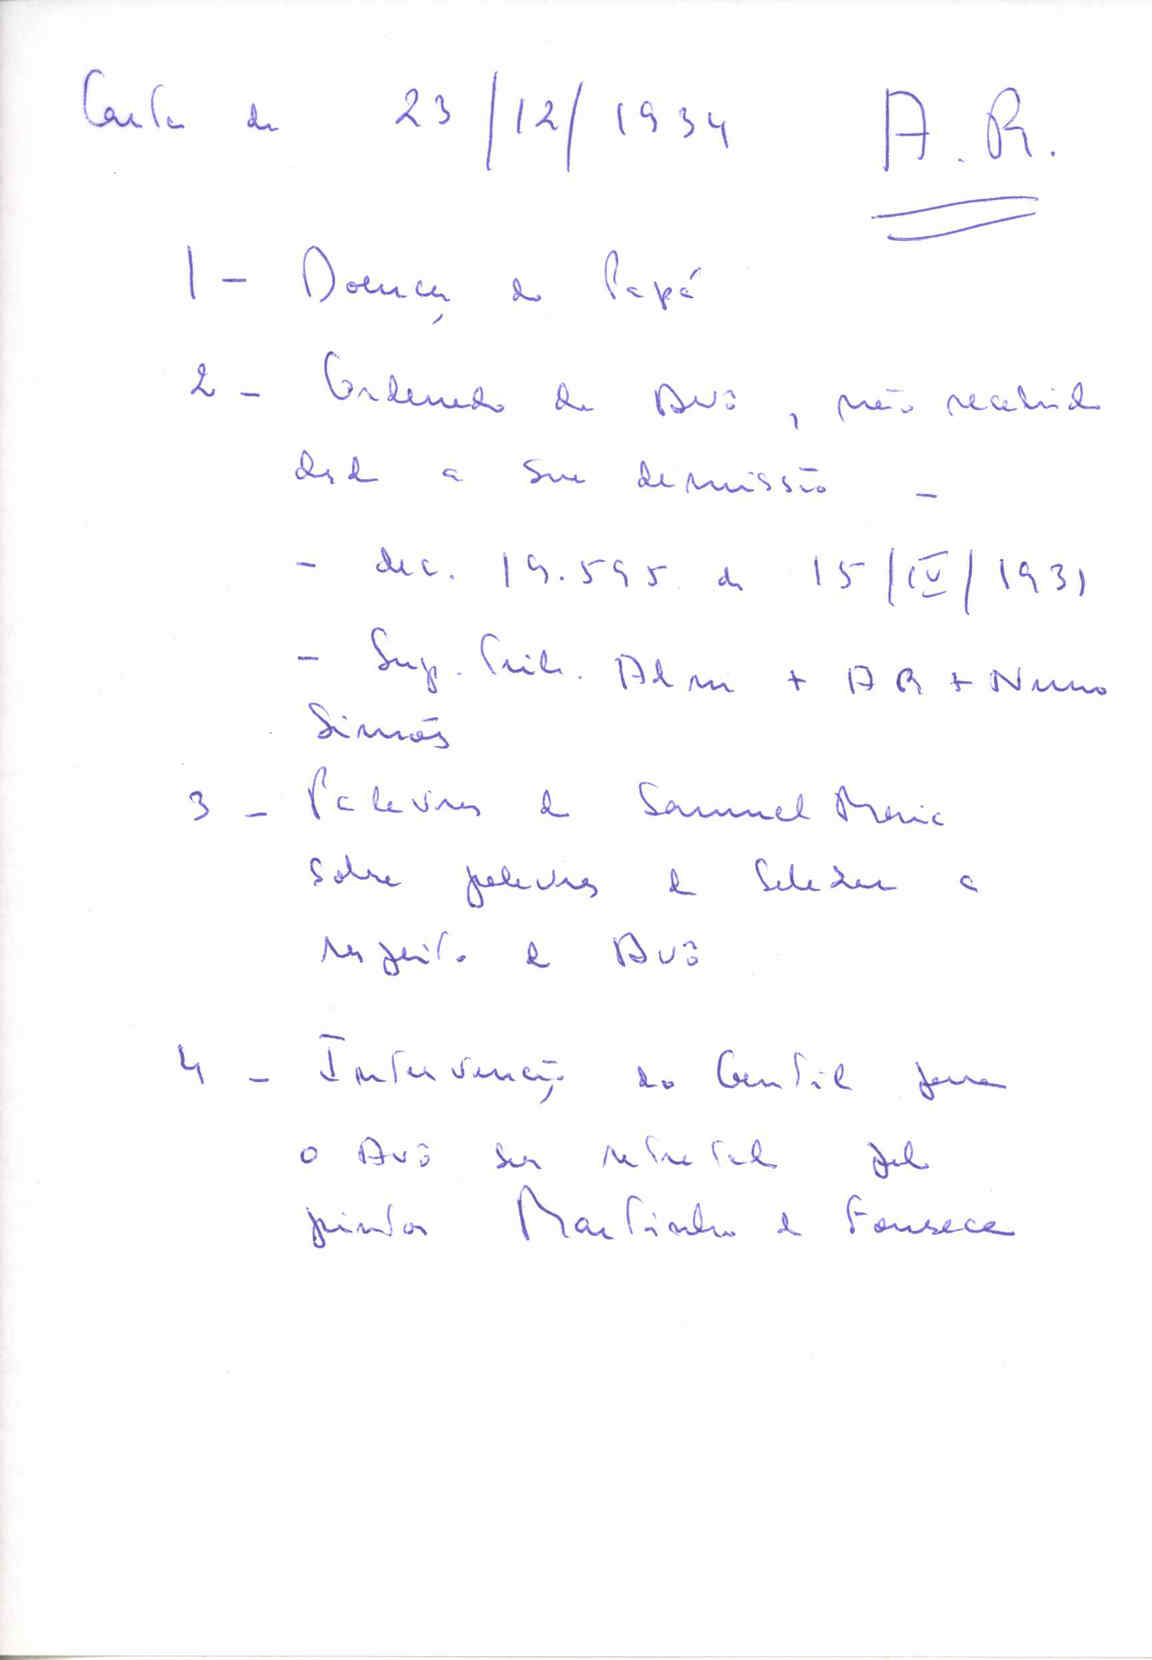 Carta de 23/12/1934 A.R.
1 - Doença do Papá
2 - Ordenado do Avô, não recebido
desde a sua demissão -
- dec. 19.595 de 15/IV/1931
- Sup. Trib. Adm + AR + Nuno
Simões
3 - Palavras de Samuel Maia
sobre palavras de Salazar a
respeito do Avô
4 - Intervenção do Gentil para
o Avô ser retratado pelo
pintor Martinho da Fonseca